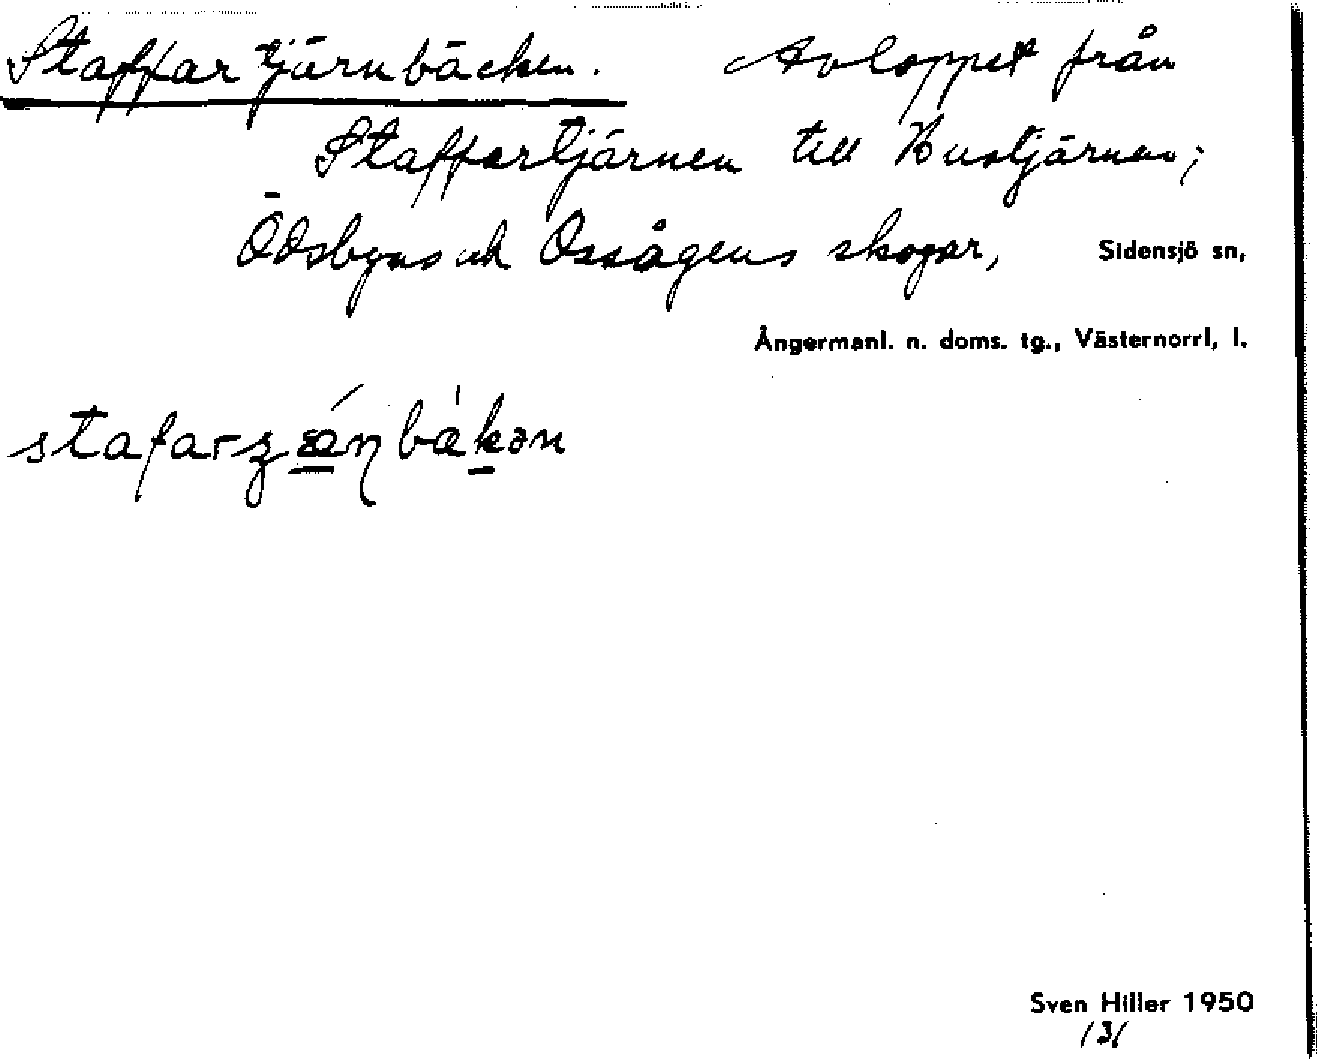 Staffartjärnbäcken. Avloppet från
Staffartjärnen till Hustjärnen;
Ödsbyns och Ossågens skogar, Sidensjö sn,
Ångermanl. n. doms. tg., Västernorrl. l.
Sven Hiller 1950
131